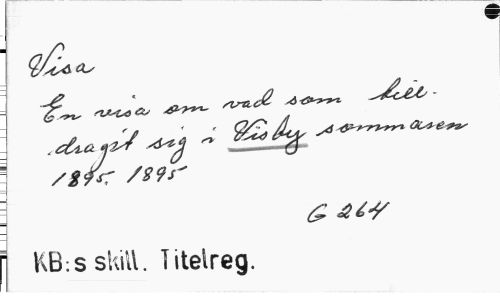 Visa
En visa om vad som till-
dragit sig i Visby sommaren
1895. 1895
G 264
KB:s skill. Titelreg.